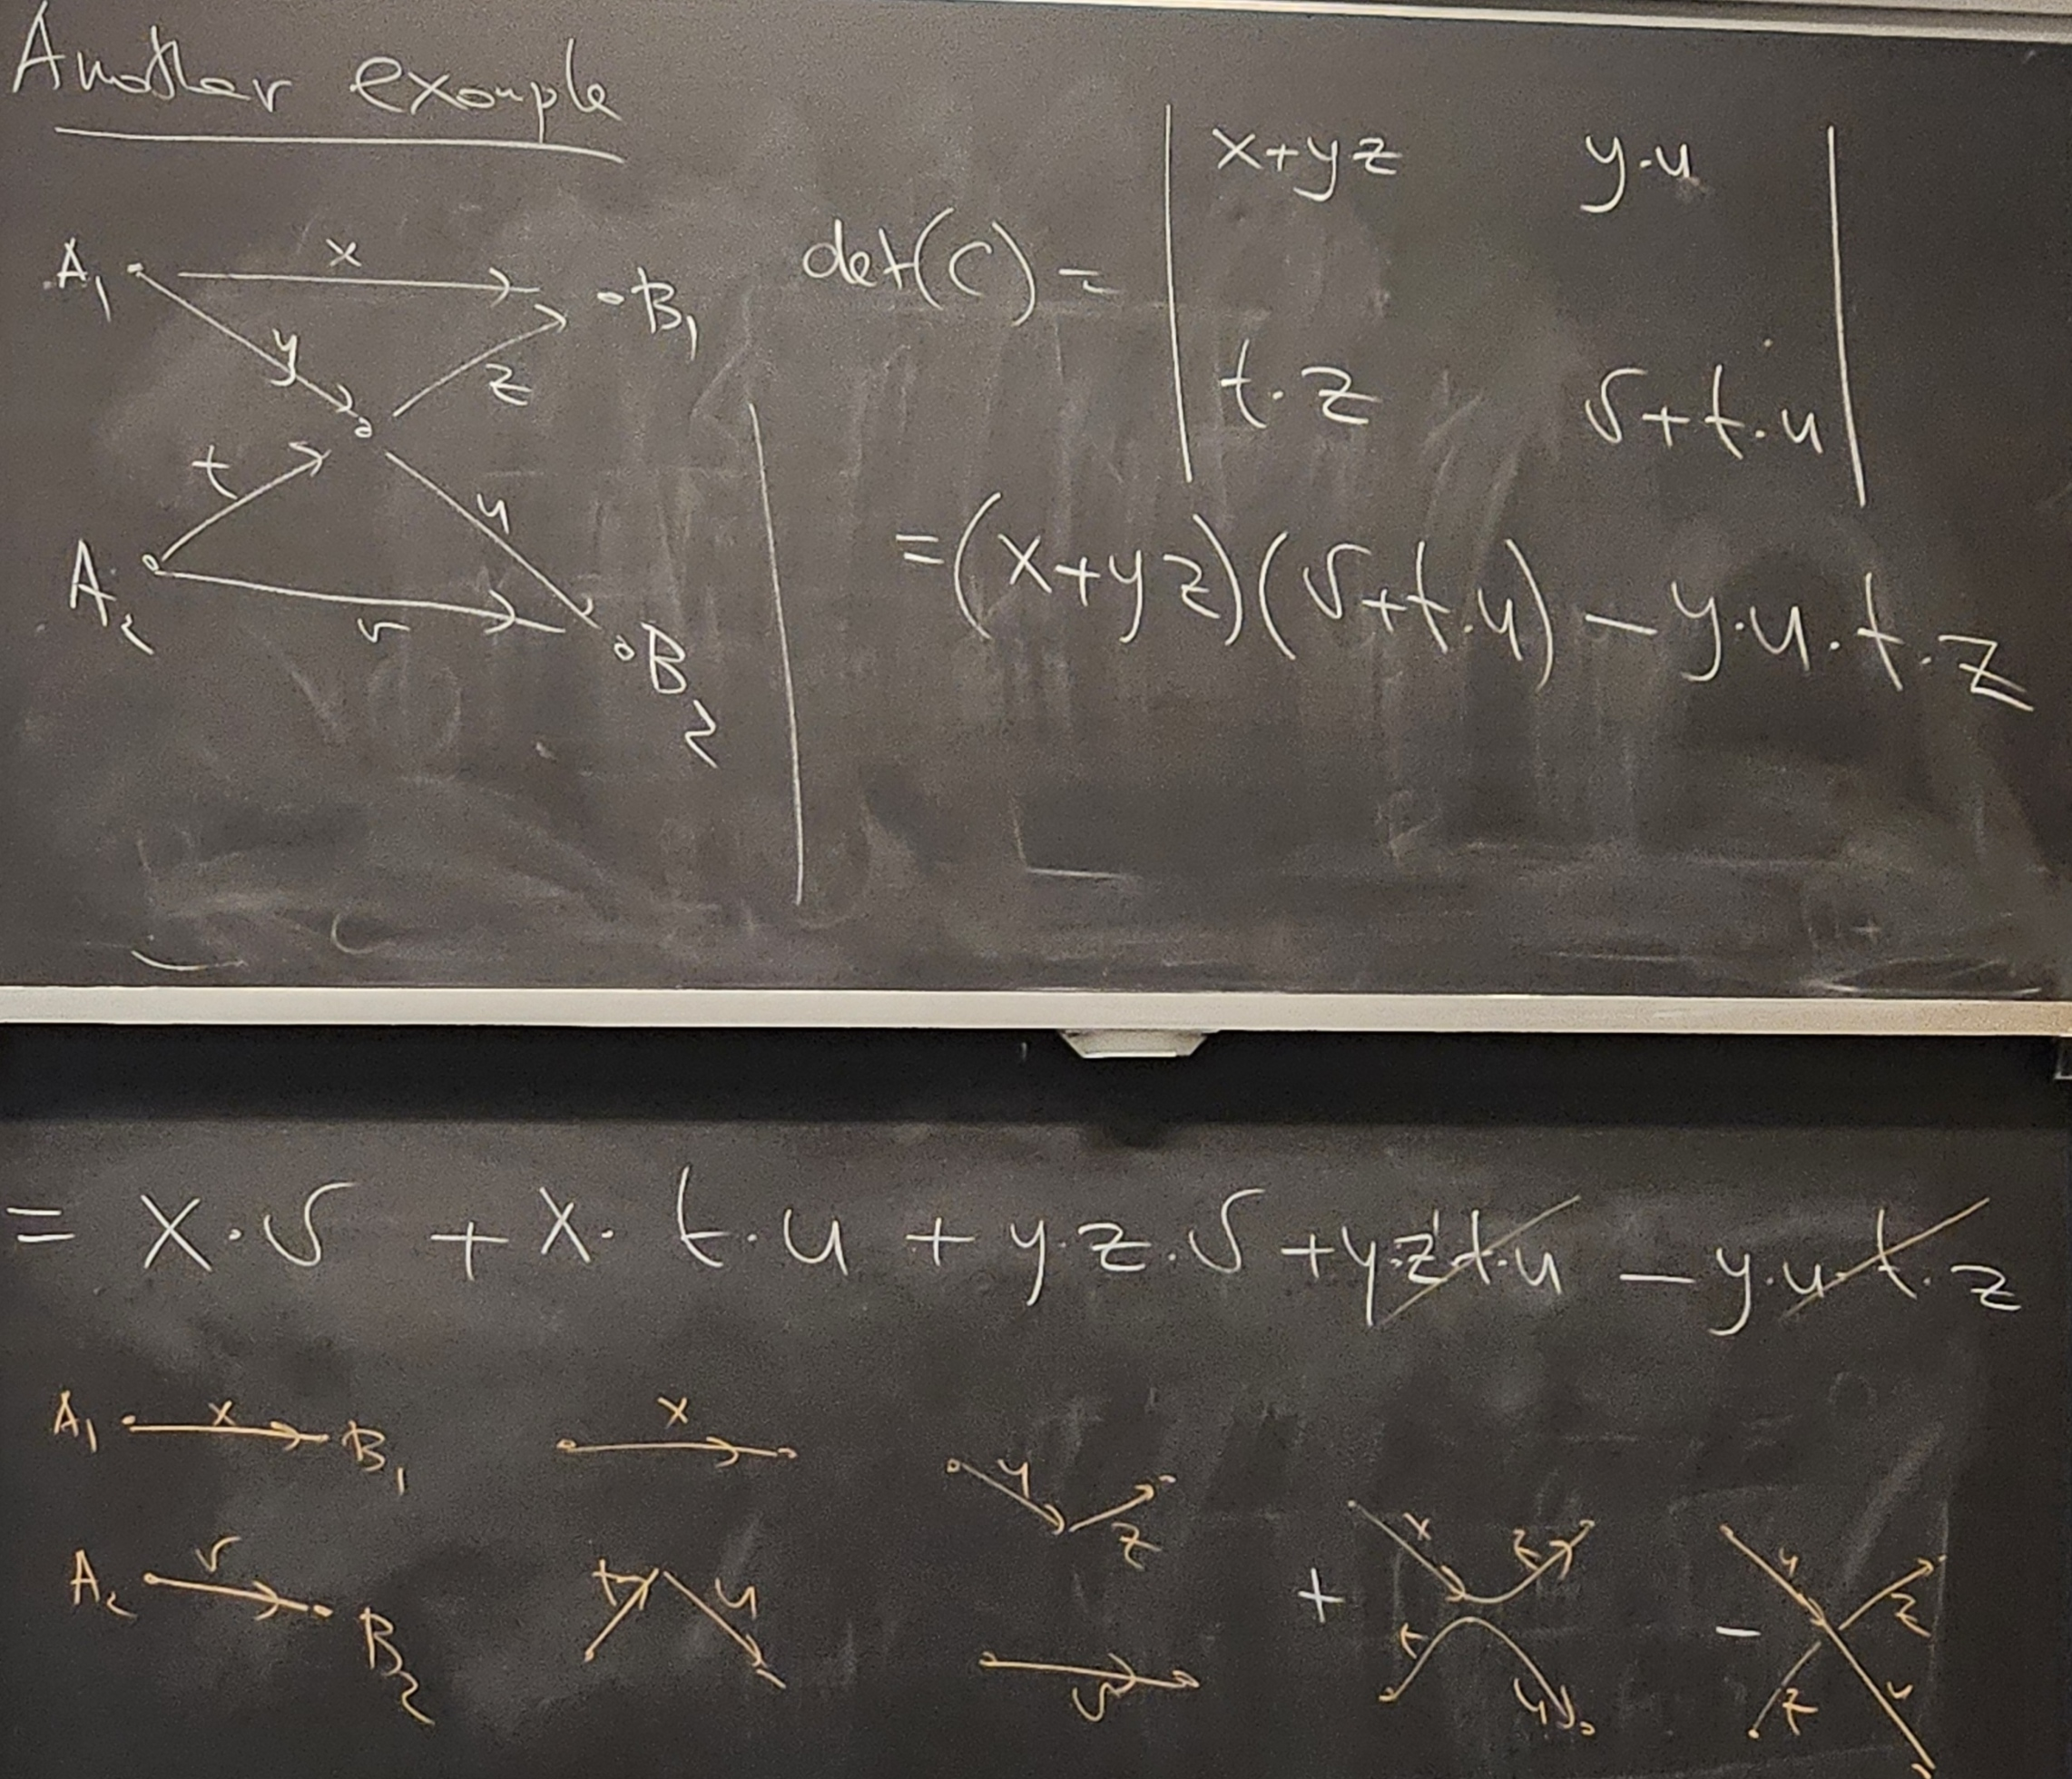 Another example
A₁ x B₁
y z
t u
A₂ v B₂
det(C) = | x+yz y·u |
| t·z v+t·u |
=(x+yz)(v+t·u) − y·u·t·z
= x·v + x·t·u + y·z·v + y·z·t·u − y·u·t·z
A₁ x B₁ x y z + x z − y z
A₂ v B₂ t u v t u t u